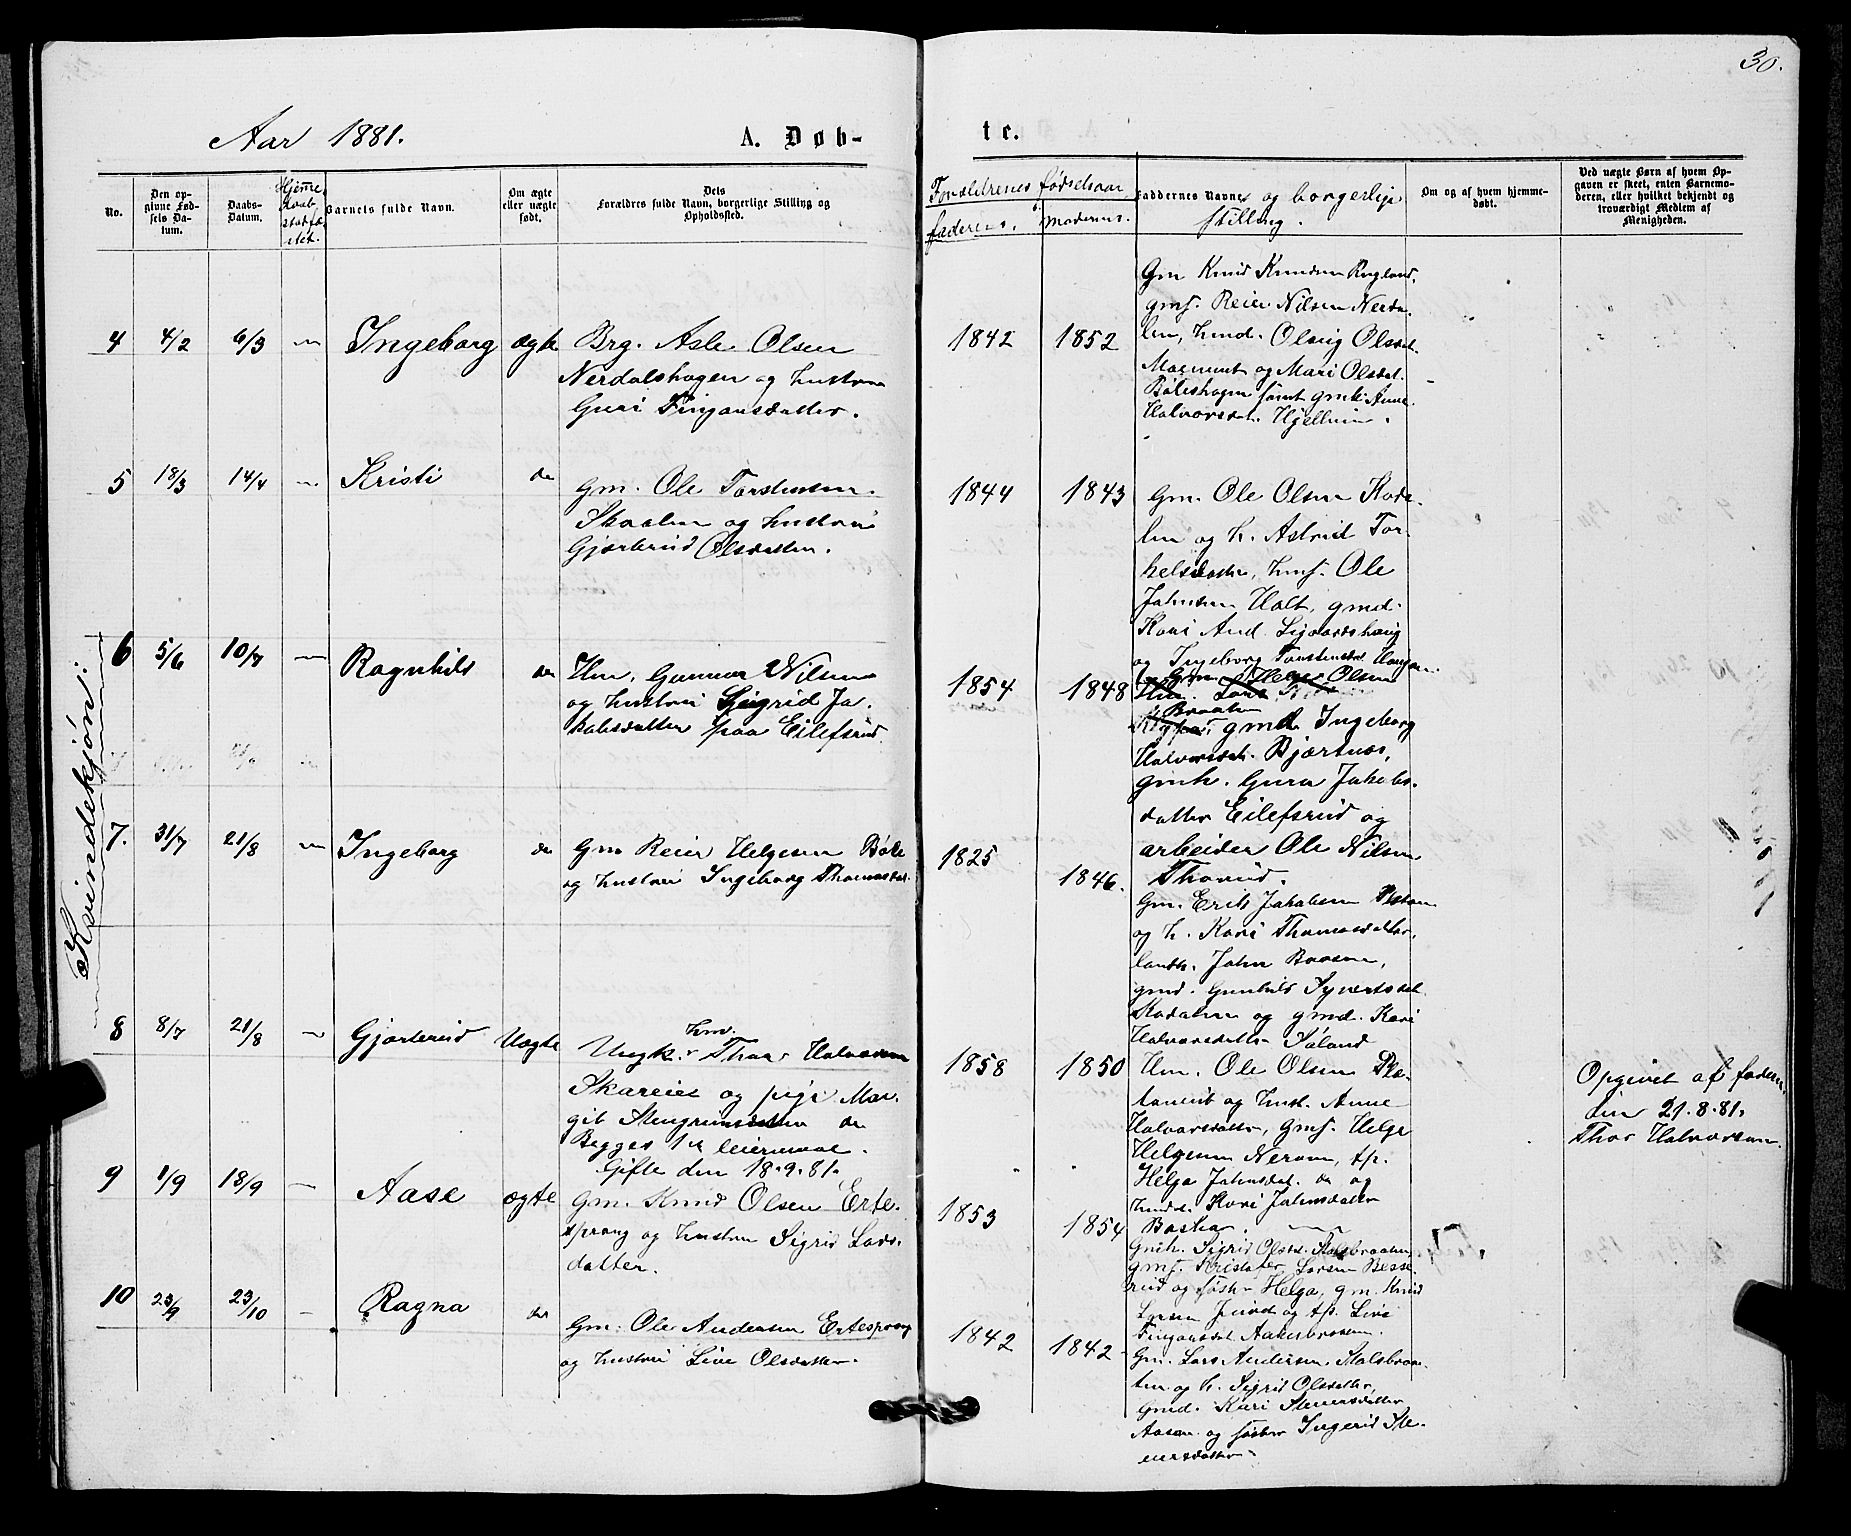 30.
Aar 1881.
A. Døb-
te.
No.
Den opgivne Fødsels Datum.
Daabs-Datum.
Hjemmedaab stadfæstet.
Barnets fulde Navn.
Om ægte eller uægte født.
Dets
Forældres fulde Navn, borgerlige Stilling og
Opholdssted.
Forældrenes fødselsaar
faderens.
moderens.
Faddernes Navne og borgerlige
stilling.
Om og af hvem hjemmedøbt.
Ved uægte Børn af hvem Opgaven er skeet, enten Barnemoderen, eller hvilket bekjendt og troværdigt Medlem af Menigheden.
Kvindekjøn:
4 4/2 6/3 — Ingeborg ægte Brg. Asle Olsen
Nerdalshagen og hustru
Guri Fingarsdatter.
1842 1852
Gm Knud Knudsen Rugland,
gms. Reier Nilsen Nerda-
len, hmd. Olaug Olsdat.
og Mari Olsdat.
Bøleshagen samt gmk. Anne
Halvorsdat. Hjellum.
5 18/3 14/4 — Kristi do
Gm. Ole Torstensen
Skaalen og hustru
Gjertrud Olsdatter.
1844 1843
Gm. Ole Olsen Roda-
len og h. Astrid Tor-
kelsdatter, hms. Ole
Johnsen Holt, gmd.
Kari And. Sigvardshaug
og Ingeborg Torstensdat. Haugen
6 5/6 10/7 — Ragnhild do
Hm. Gunnar Nilsen
og hustru Sigrid Ja-
kobsdatter paa Eilefsrud
1854 1848
Gm. Helge Olsen
Hm. Lars
Braaten
gmd. Ingeborg
Halvorsdat. Bjørtnæs,
gmk. Guro Jakobs-
datter Eilefsrud og
arbeider Ole Nilsen
Thorud.
7. 31/7 21/8 — Ingeborg do
Gm Reier Helgesen Bøle
og hustru Ingeborg Thomasdat.
1825 1846.
Gm. Erik Jakobsen
og h. Kari Thomasdatter,
John Baasen,
gmd. Gunhild Syvertsdat.
Rodalen og gmd. Kari
Halvorsdatter Søland
8 8/7 21/8 — Gjertrud Uægte
hm.
Ungk. Thor Halvorsen
Skareiet og pige Mar-
git Stengrimsdatter do
Begges 1ste leiermaal.
Gifte den 18.9.81.
1858 1850
Hm. Ole Olsen Pla-
taneiet og hust. Anne
Halvorsdatter, gms. Helge
Helgesen Nerom, tp.
Helga Johnsdat. do og
Kari Johnsdatter
Bakka.
Opgivet af faderen
den 21.8.81.
Thor Halvorsen.
9 1/9 18/9 — Aase ægte
Gm. Knud Olsen Erte-
sprang og hustru Sigrid Lars-
datter.
1853 1854
Gmk. Sigrid Olsdat. Stalsbraaten,
gms. Kristofer Larsen Besse-
rud og søster Helga, gm. Knud
Larsen Juvet og tp. Live
Fingarsdat. Aakesbraaten.
10 23/9 23/10 — Ragna do
Gm. Ole Andersen Ertesprang
og hustru Live Olsdatter.
1842 1842
Gm. Lars Andersen Stalsbraa-
ten og h. Sigrid Olsdatter,
Gmd. Kari Steenersdatter
Aasen og søster Ingerid Ste-
enersdatter